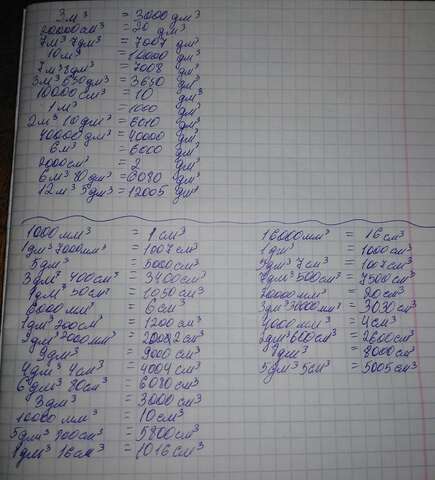 3м³ = 3000 дм³
20000см³ = 20 дм³
7м³ 7дм³ = 7007 дм³
10м³ = 10000 дм³
7м³ 8дм³ = 7008 дм³
3м³ 650дм³ = 3650 дм³
10000см³ = 10 дм³
1м³ = 1000 дм³
2м³ 10дм³ = 6010 дм³
40000дм³ = 40000 дм³
6м³ = 6000 дм³
2000см³ = 2 дм³
6м³ 80дм³ = 6080 дм³
12м³ 5дм³ = 12005 дм³
1000мм³ = 1см³
1дм³ 7000мм³ = 1007см³
5дм³ = 5000см³
3дм³ 400см³ = 3400см³
1дм³ 50см³ = 1050см³
6000мм³ = 6см³
1дм³ 200см³ = 1200см³
2дм³ 2000мм³ = см³
9дм³ = 9000см³
4дм³ 4см³ = 4004см³
6дм³ 80см³ = 6080см³
3дм³ = 3000см³
10000мм³ = 10см³
5дм³ 800см³ = 5800см³
1дм³ 16см³ = 1016см³
16000мм³ = 16см³
1дм³ = 1000см³
дм³ 7см³ = 1007см³
7дм³ 500см³ = 7500см³
20000мм³ = 20см³
3дм³ 30000мм³ = 3030см³
4000мм³ = 4см³
2дм³ 600см³ = 2600см³
дм³ = 8000см³
5дм³ 5см³ = 5005см³